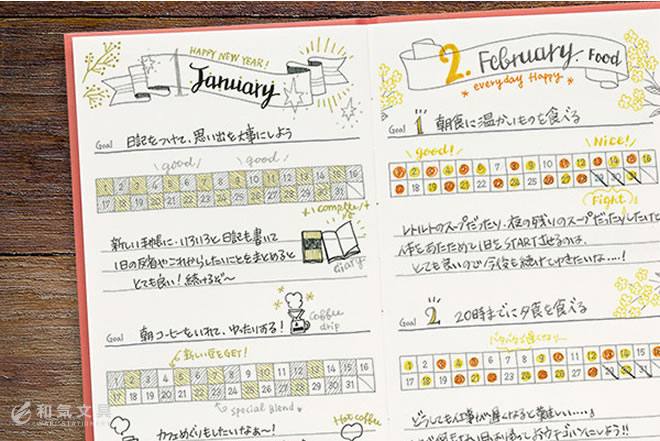 HAPPY NEW YEAR!
January
Goal 日記をつけて、思い出を大事にしよう
good! good!
1 2 3 4 5 6 7 8 9 10 11 12 13 14 15 16
17 18 19 20 21 22 23 24 25 26 27 28 29 30 31
complete!
新しい手帳に、いろいろと日記も書いて
1日の反省やこれからしたいことをまとめると
とても良い!続けるぞ〜
diary
Goal 朝コーヒーをいれて、ゆったりする!
Coffee drip
新しい豆をGET!
1 2 3 4 5 6 7 8 9 10 11 12 13 14 15 16
17 18 19 20 21 22 23 24 25 26 27 28 29 30 31
special Blend
Hot coffee
カフェめぐりもしたいなぁ〜!
和氣文具
WAKI STATIONERY
2. February Food
everyday Happy
Goal 1 朝食に温かいものを食べる
good! Nice!
1 2 3 4 5 6 7 8 9 10 11 12 13 14 15 16
17 18 19 20 21 22 23 24 25 26 27 28 29 30 31
Fight!
レトルトのスープだったり、夜の残りのスープだったりしたけど
体をあたためて1日をSTARTするのは、
とても良いので今後も続けてゆきたいな…!
Goal 2 20時までに夕食を食べる
1 2 3 4 5 6 7 8 9 10 11 12 13 14 15 16
17 18 19 20 21 22 23 24 25 26 27 28 29 30 31
どうしても仕事が遅くなると